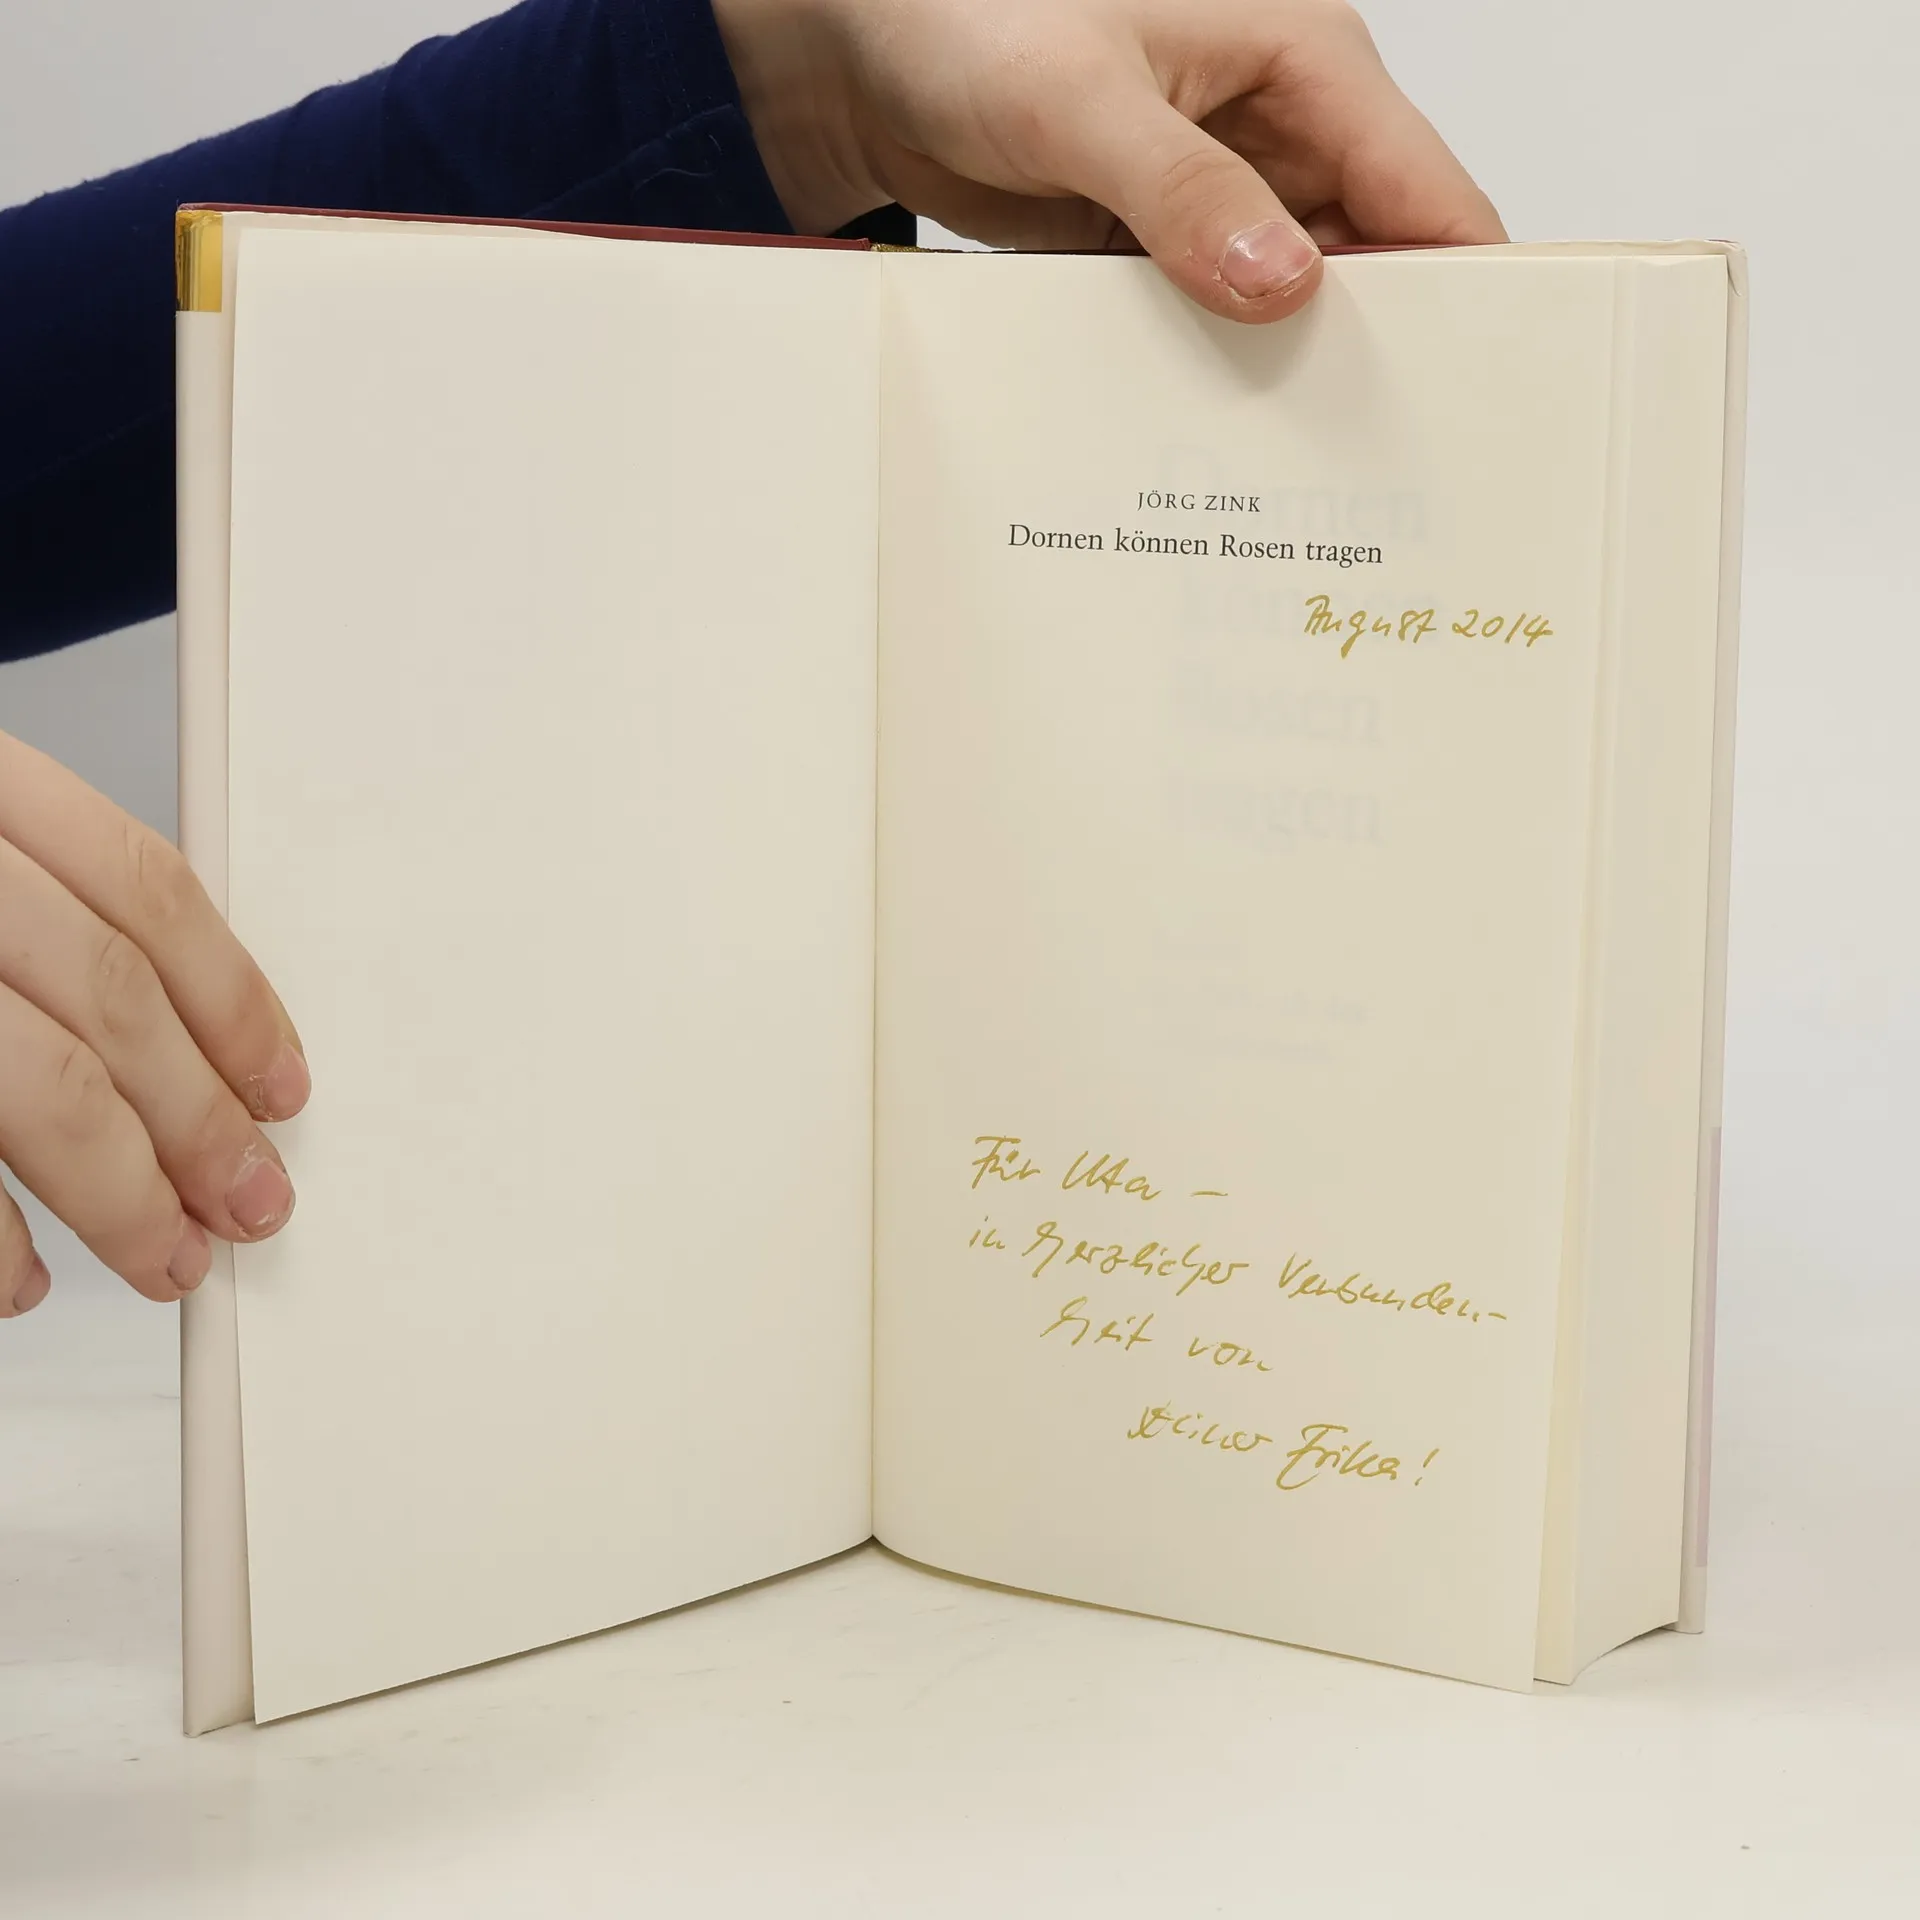 JÖRG ZINK
Dornen können Rosen tragen
August 2014
Für Uta –
in herzlicher Verbunden-
heit von
Deiner Erika!